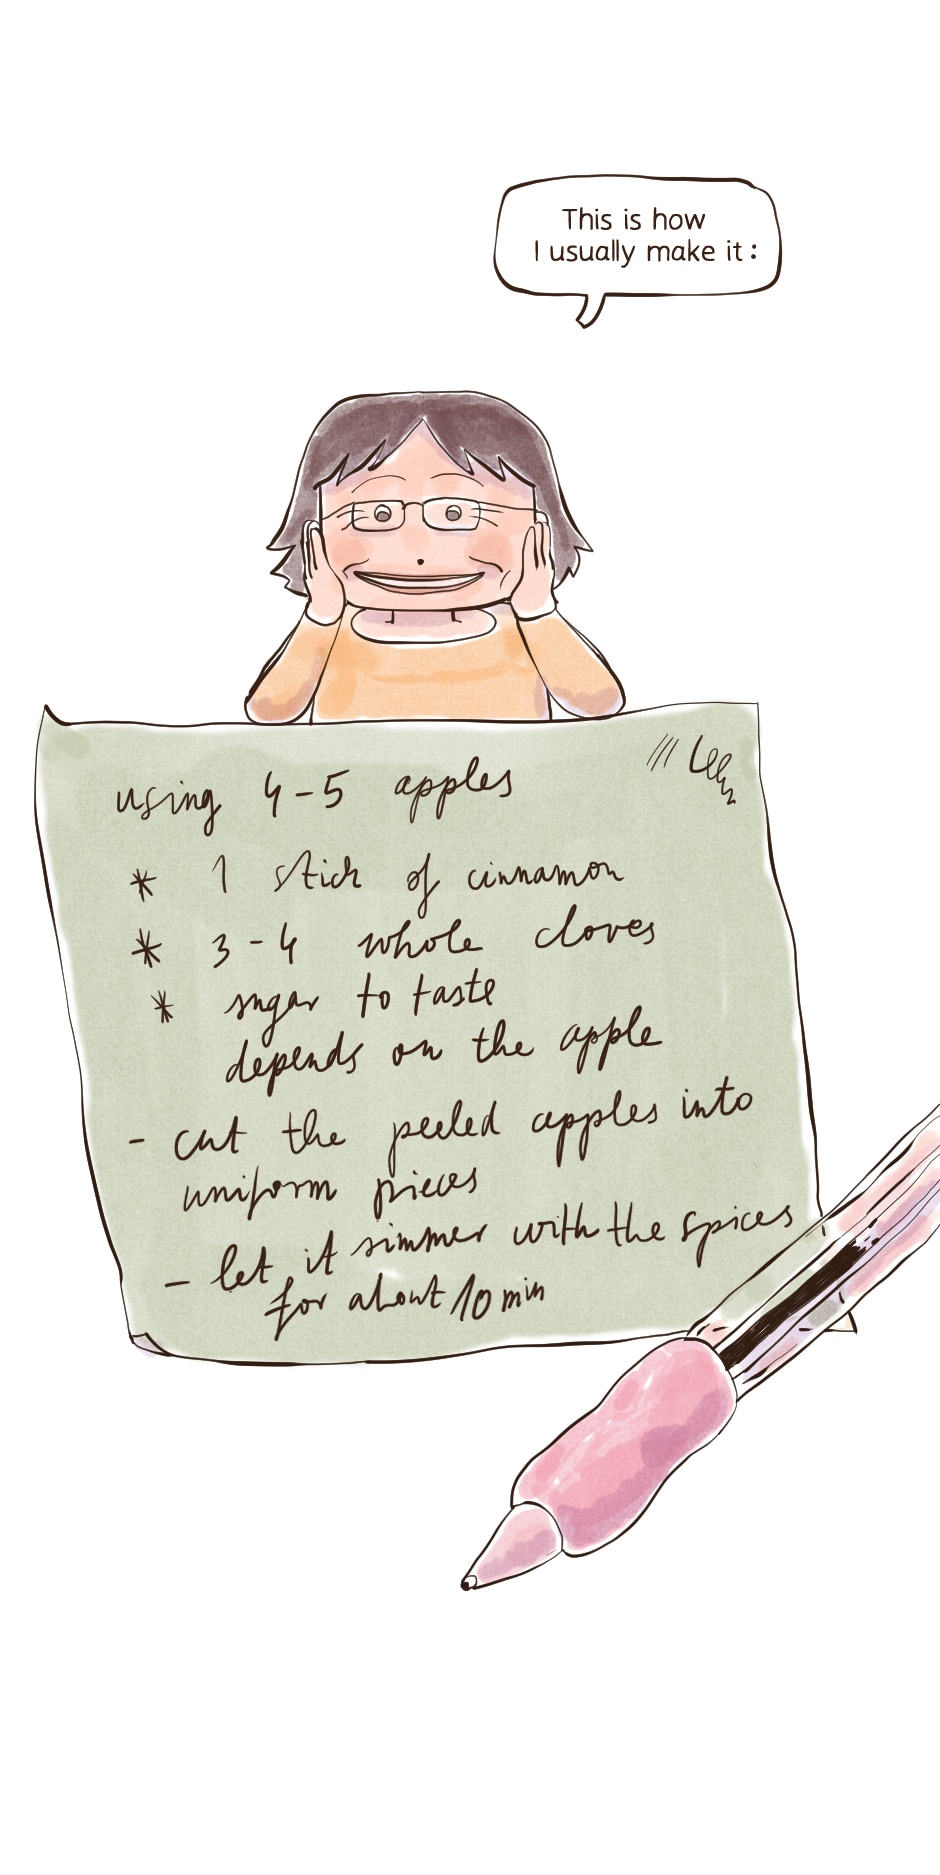 This is how
I usually make it:
using 4-5 apples
* 1 stick of cinnamon
* 3-4 whole cloves
* sugar to taste
depends on the apple
- cut the peeled apples into
uniform pieces
- let it simmer with the spices
for about 10 min